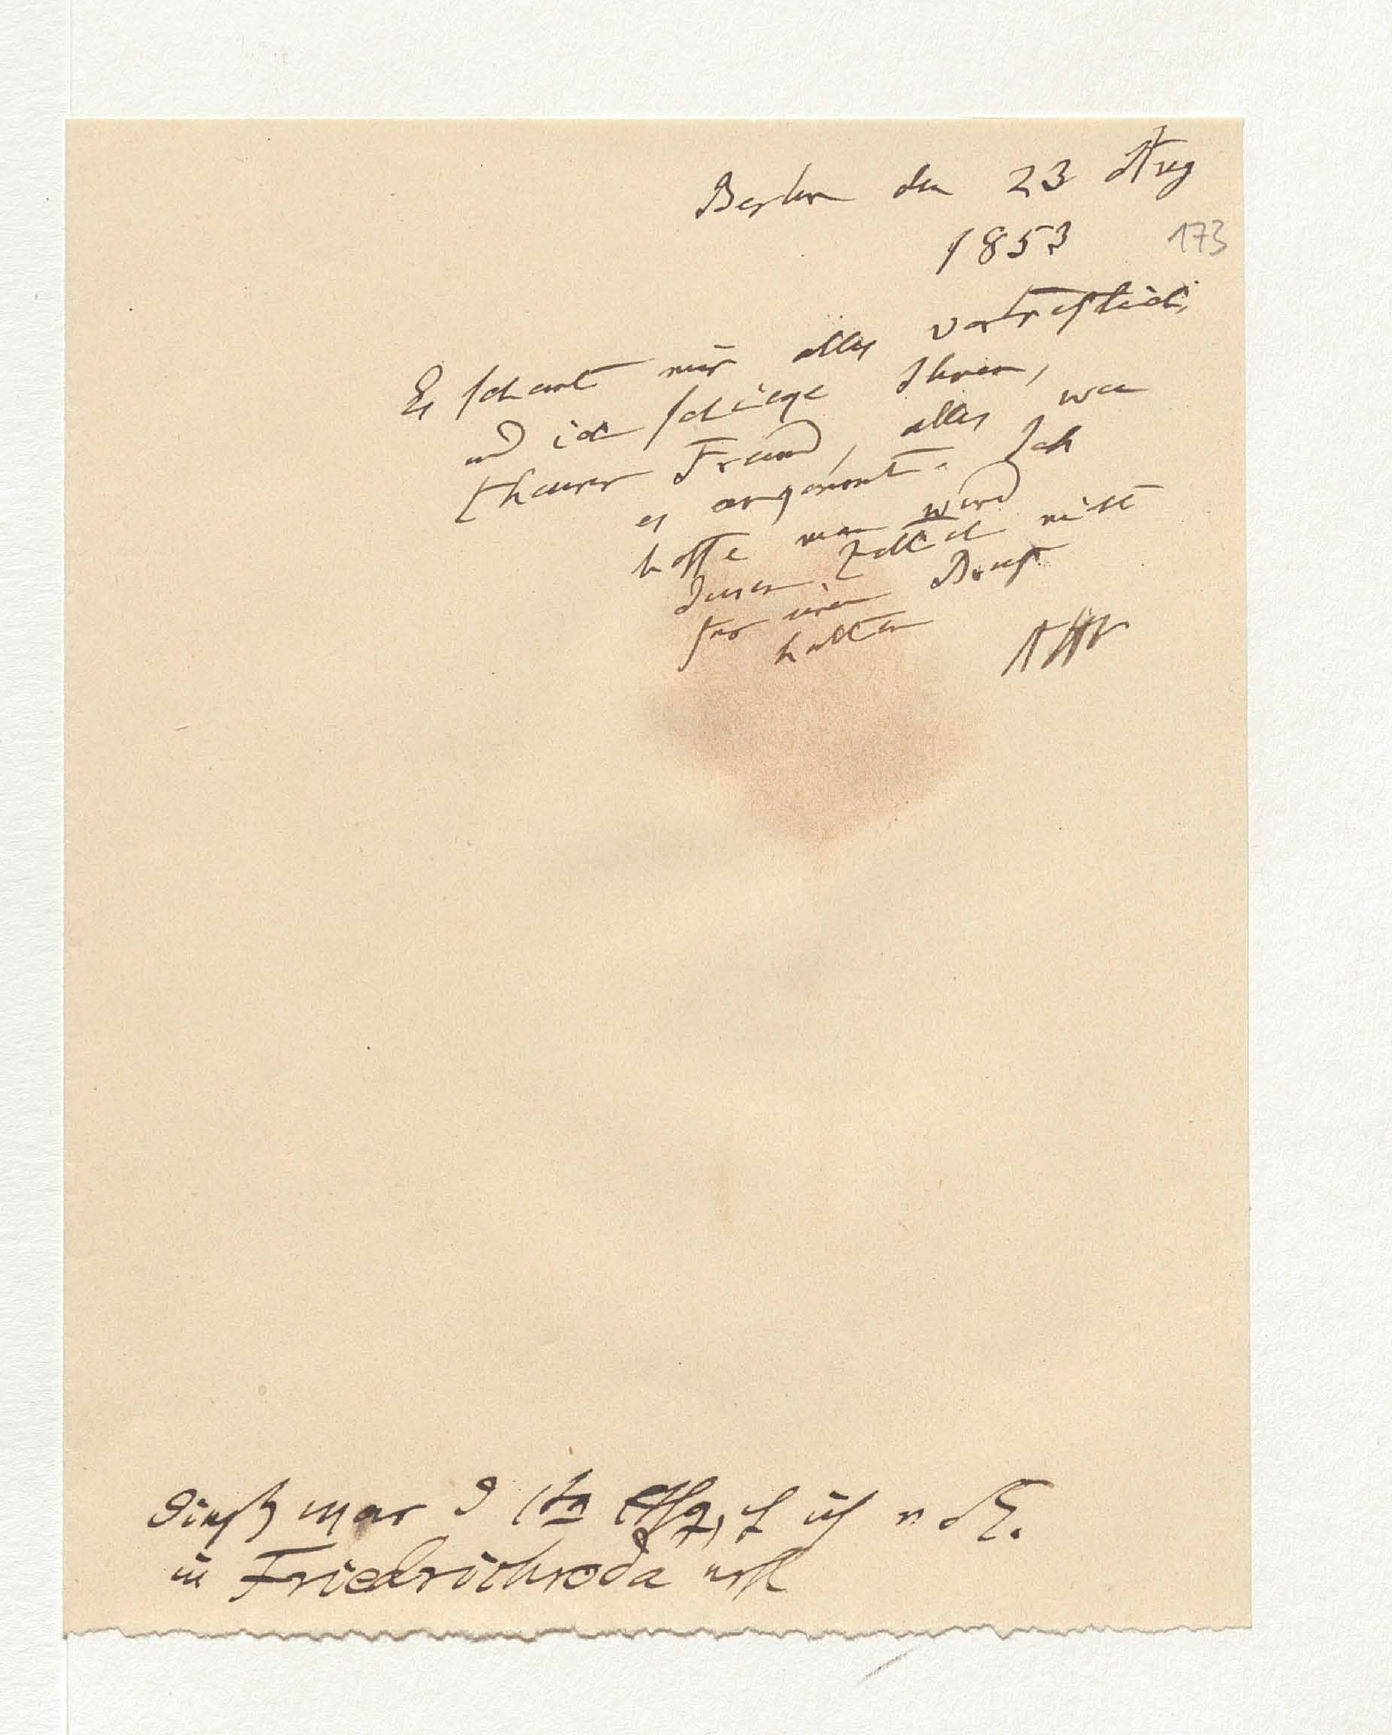 Berlin den 23 Aug
1853
173
Es scheint mir alles vortreflich,
und ich schicke Ihnen,
theurer Freund, alles was
es angekommt. Ich
hoffe man wird
diesen Zettel nicht
für einen Brief
halten
AHt
Dieß war d
in Friedrichroda